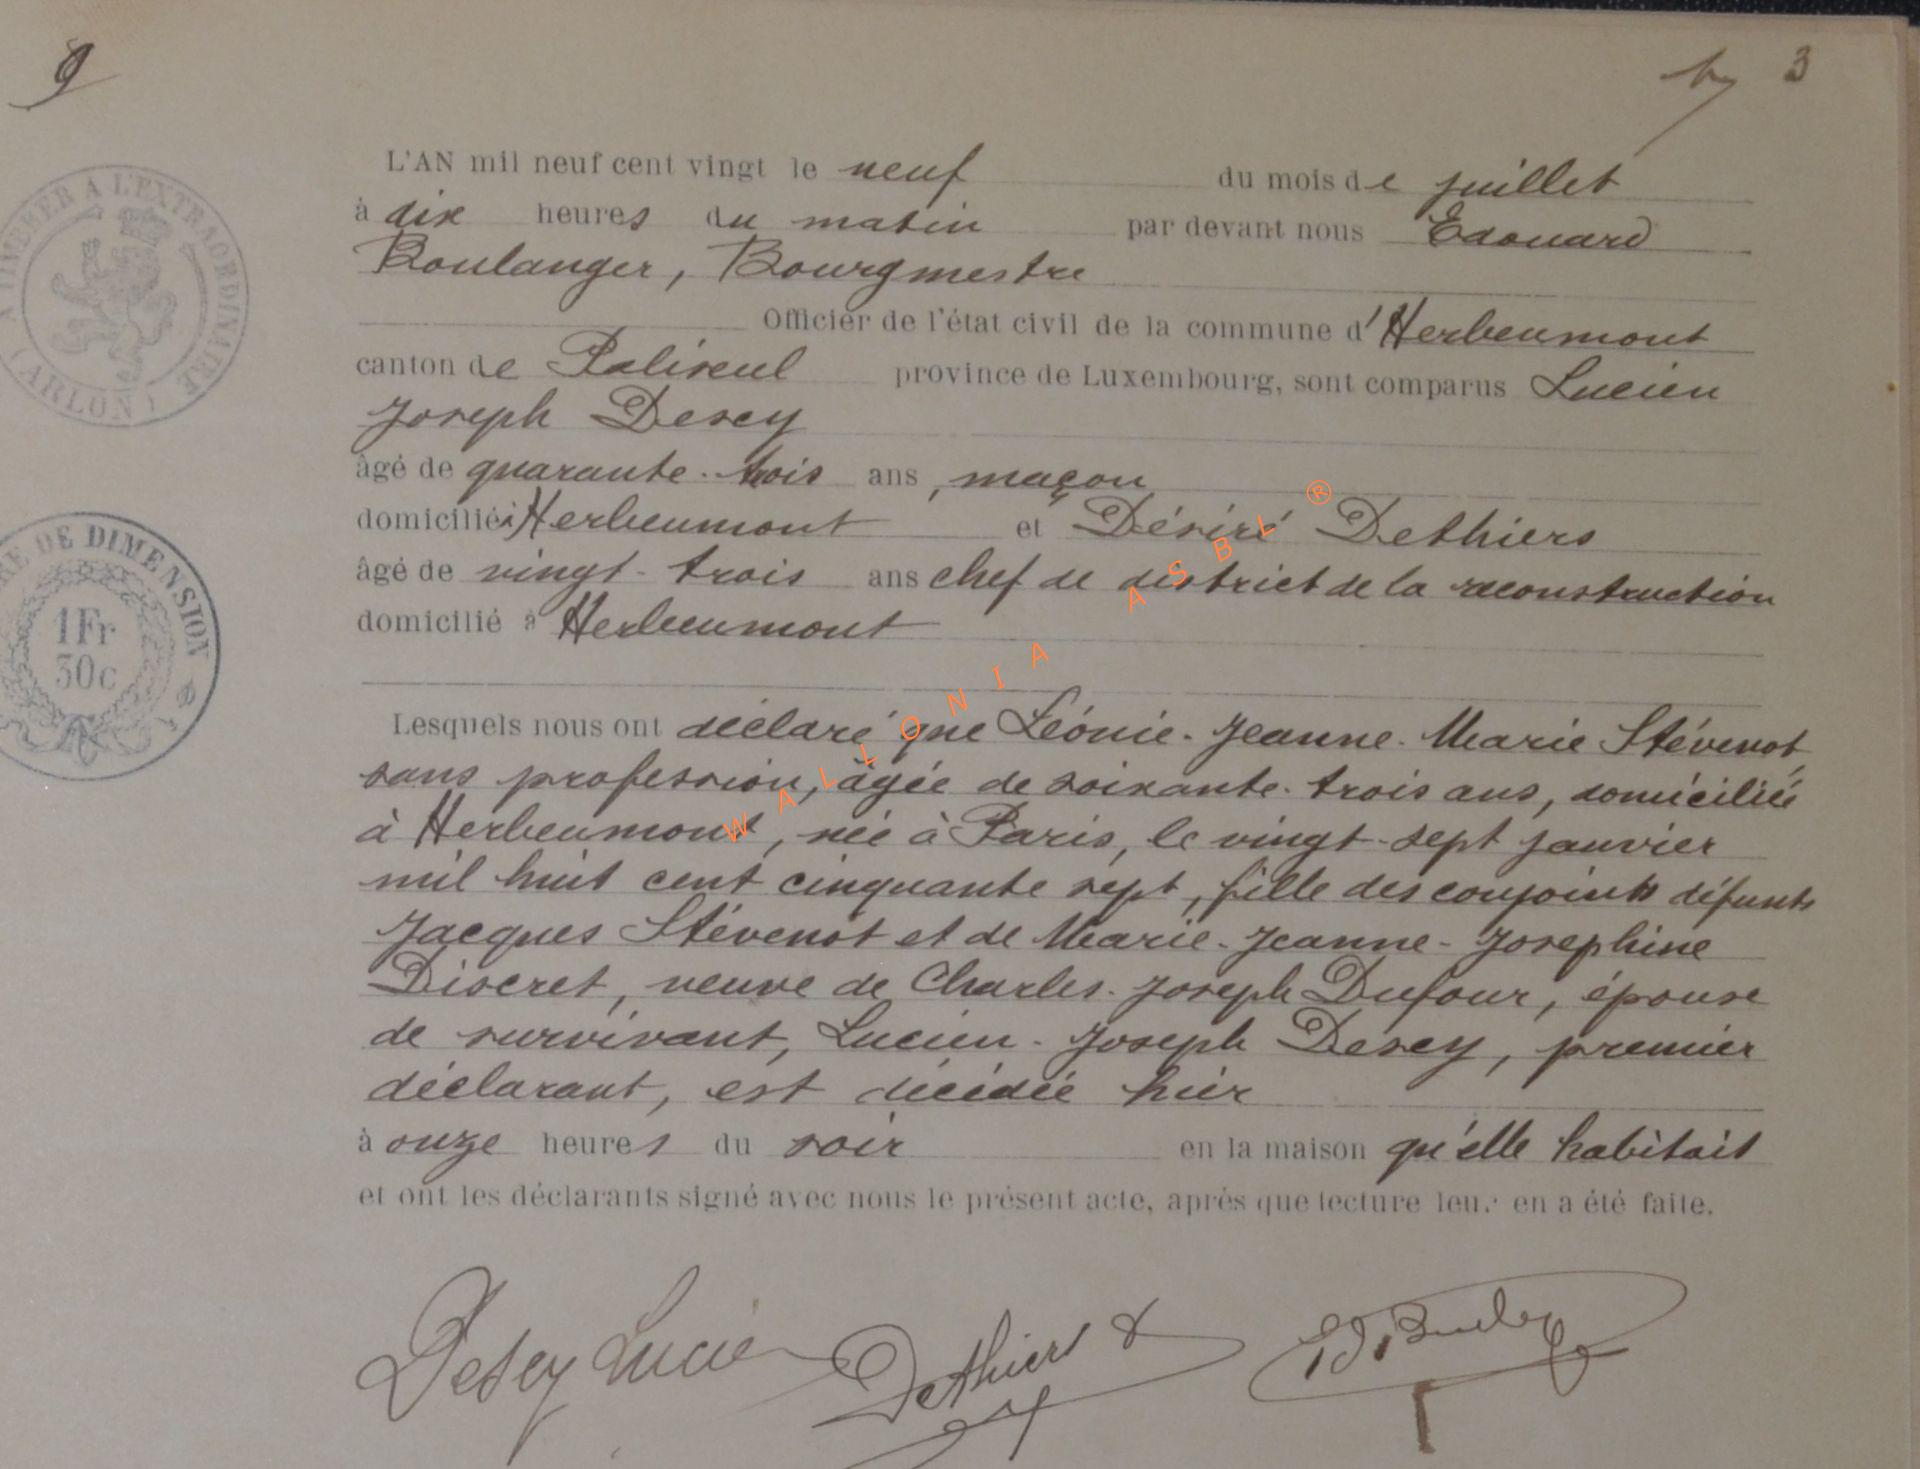 9
3
L'AN mil neuf cent vingt le neuf du mois de juillet
à dix heures du matin par devant nous Edouard
Boulanger, Bourgmestre
Officier de l'état civil de la commune d'Herbeumont
canton de Paliseul province de Luxembourg, sont comparus Lucien
Joseph Desey
âgé de quarante-trois ans, maçon
domicilié à Herbeumont et Désiré Dethiers
âgé de vingt-trois ans chef de district de la reconstruction
domicilié à Herbeumont
Lesquels nous ont déclaré que Léonie-Jeanne-Marie Stévenot,
sans profession, âgée de soixante-trois ans, domiciliée
à Herbeumont, née à Paris, le vingt-sept janvier
mil huit cent cinquante sept, fille des conjoints défunts
Jacques Stévenot et de Marie-Jeanne-Josephine
Discret, veuve de Charles-Joseph Dufour, épouse
de survivant, Lucien-Joseph Desey, premier
déclarant, est décédée hier
à onze heures du soir en la maison qu'elle habitait
et ont les déclarants signé avec nous le présent acte, après que lecture leur en a été faite.
Desey Lucien Dethiers D Ed. Boulanger
A TIMBRER A L'EXTRAORDINAIRE
(ARLON)
DE DIMENSION
1Fr
30c
WALLONIA ASBL ®